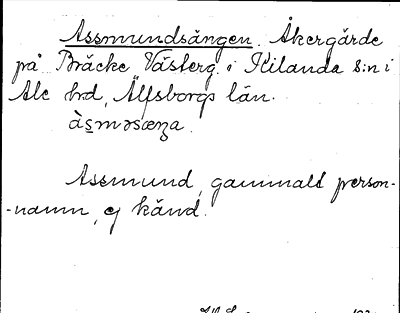 Assmundsängen. Åkergärde
på Bräcke Västerg. i Kilanda s:n i
Ale hd, Älfsborgs län.
àsməsæŋa.
Assmund, gammalt person-
-namn, ej känd.